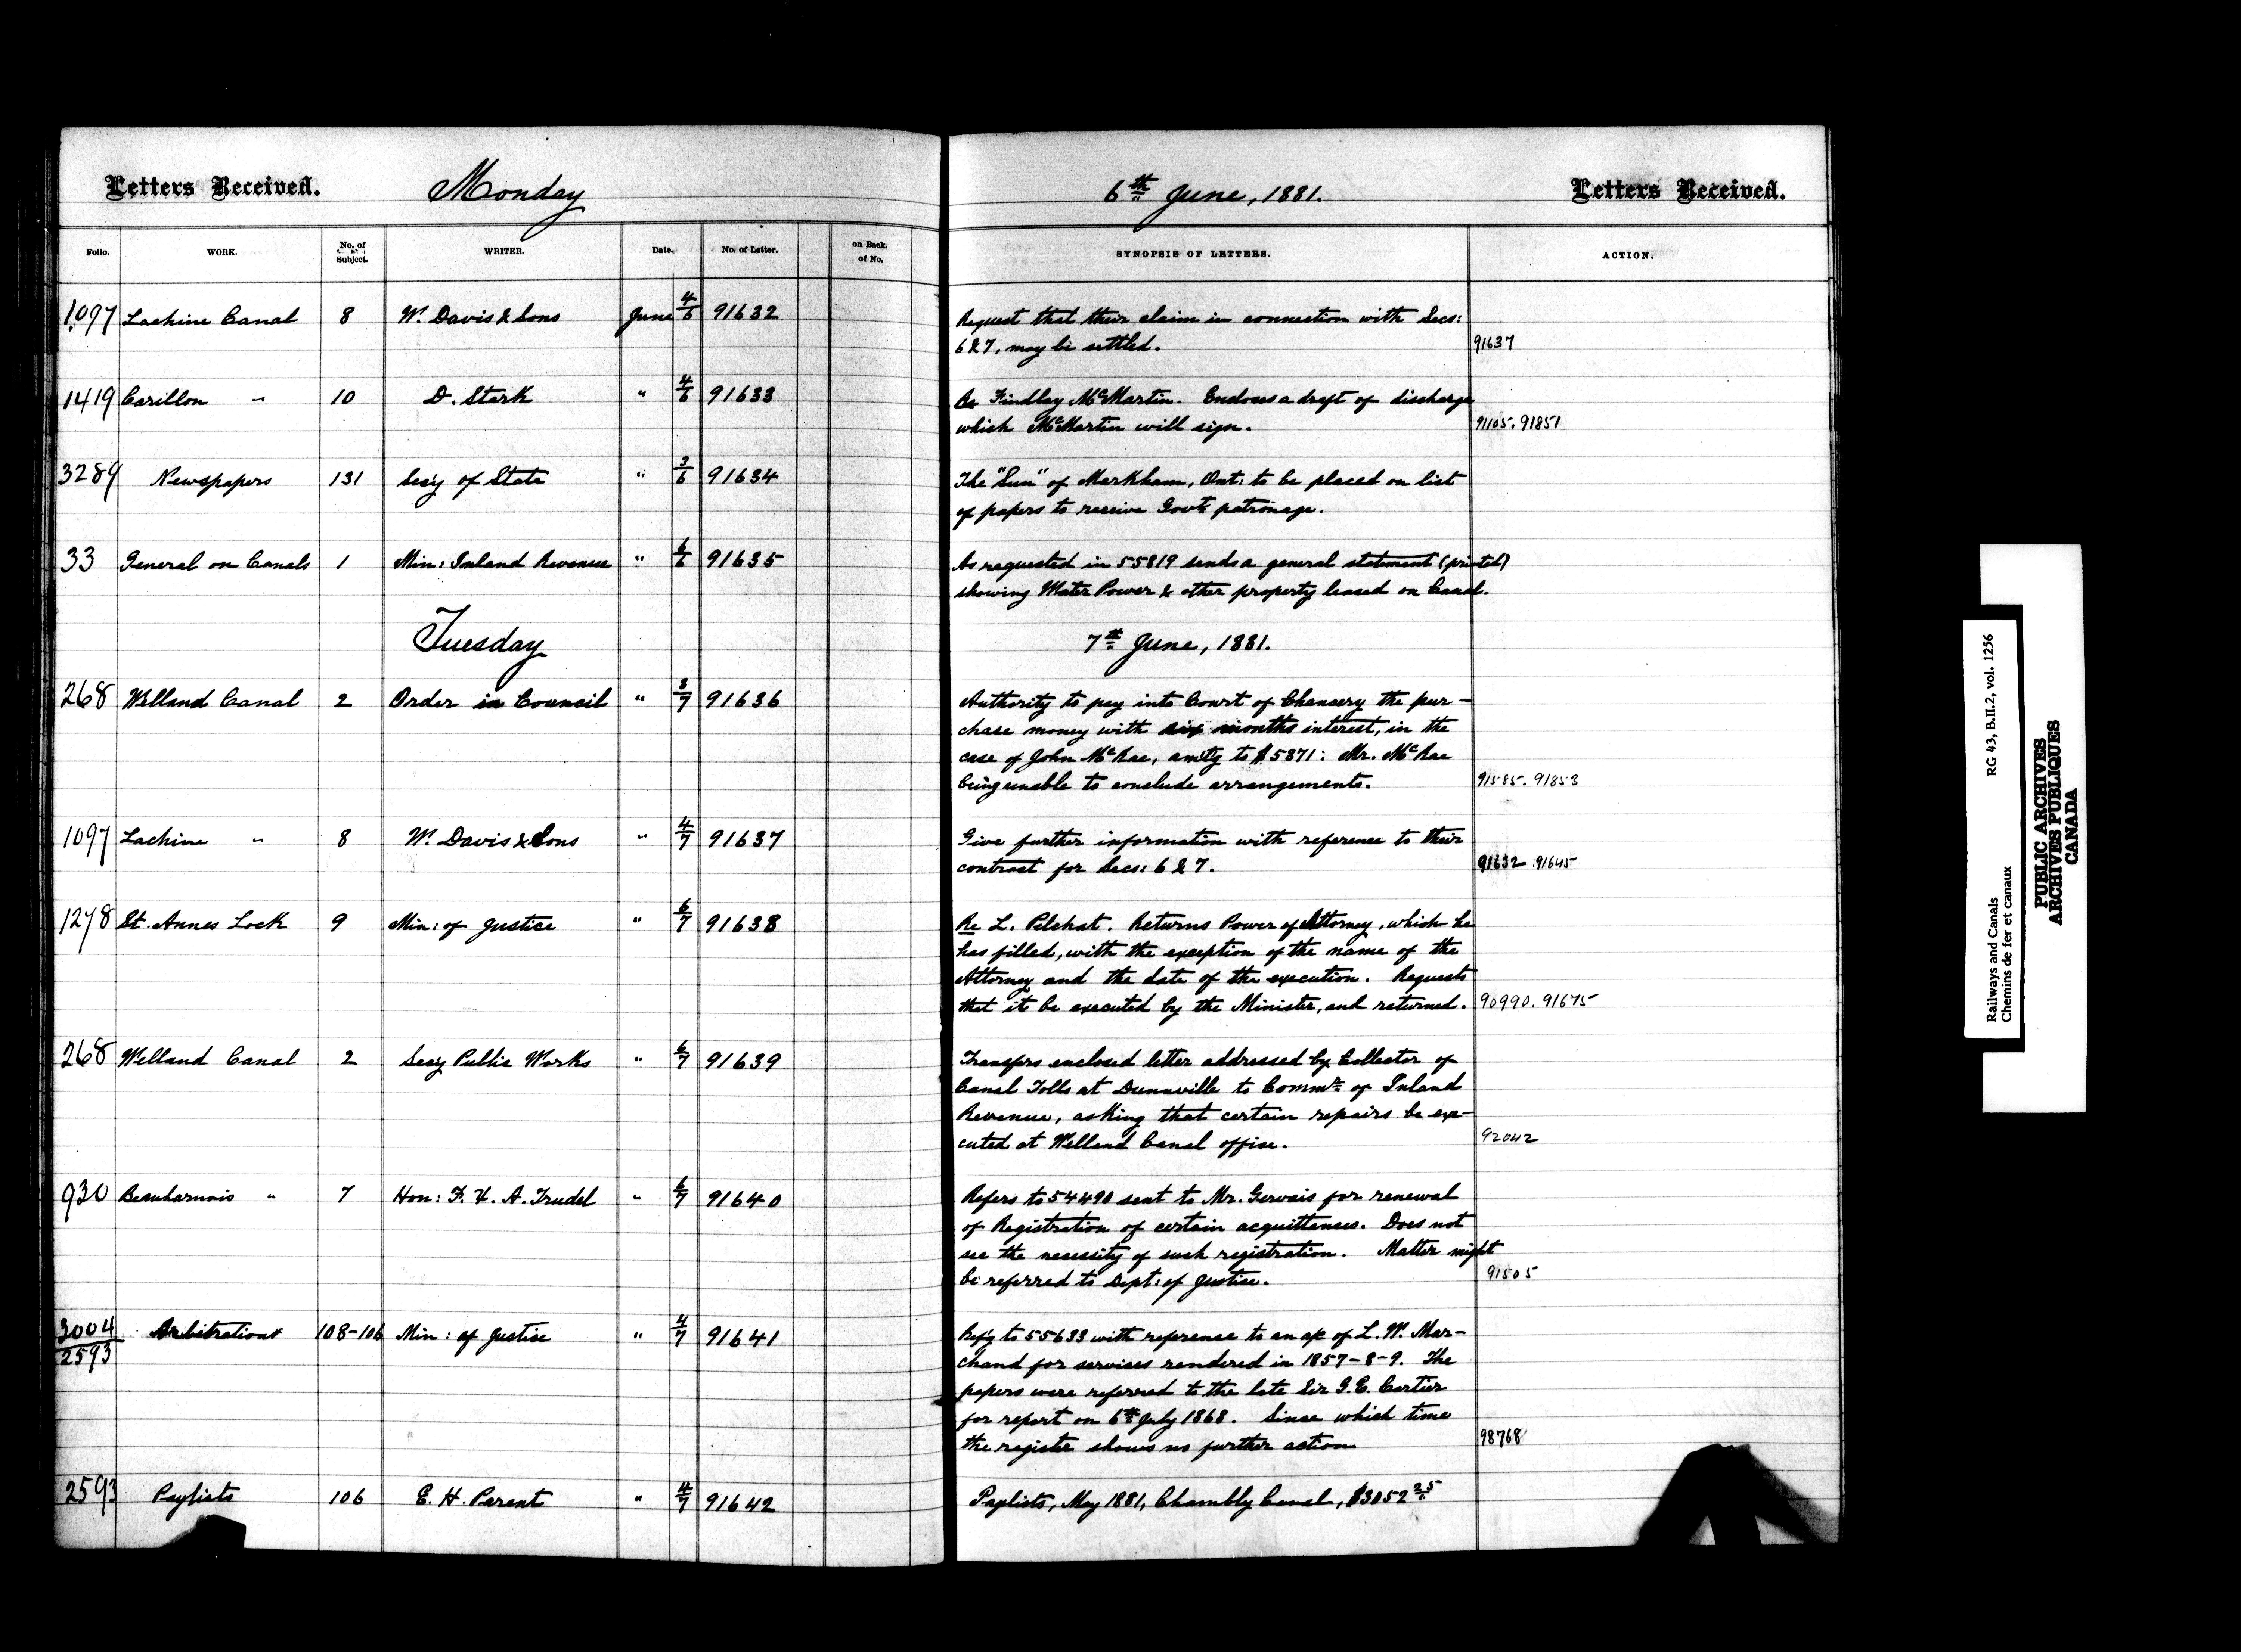 Letters Received. Monday 6th June, 1881. Letters Received.
Folio. WORK. No. of Subject. WRITER. Date. No. of Letter. on Back. of No. SYNOPSIS OF LETTERS. ACTION.
1097 Lachine Canal 8 W. Davis & Sons June 4/6 91632 Request that their claim in connection with Secs:
6 & 7, may be settled. 91637
1419 Carillon " 10 D. Stark " 4/6 91633 Re Findlay McMartin. Encloses a draft of discharge
which McMartin will sign. 91105. 91851
3289 Newspapers 131 Secy of State " 3/6 91634 The "Sun" of Markham, Ont: to be placed on list
of papers to receive Govt patronage.
33 General on Canals 1 Min: Inland Revenue " 6/6 91635 As requested in 55819 sends a general statement (printed)
showing Water Power & other property leased on Canal.
Tuesday 7th June, 1881.
268 Welland Canal 2 Order in Council " 3/7 91636 Authority to pay into Court of Chancery the pur-
chase money with six months interest, in the
case of John McRae, amtg to $5871: Mr. McRae
being unable to conclude arrangements. 91585. 91853
1097 Lachine " 8 W. Davis & Sons " 4/7 91637 Give further information with reference to their
contract for Secs: 6 & 7. 91632 91645
1278 St. Annes Lock 9 Min: of Justice " 6/7 91638 Re L. Pilchat. Returns Power of Attorney, which he
has filled, with the exception of the name of the
Attorney and the date of the execution. Requests
that it be executed by the Minister, and returned. 90990. 91675
268 Welland Canal 2 Secy Public Works " 6/7 91639 Transfers enclosed letter addressed by Collector of
Canal Tolls at Dunnville to Commr of Inland
Revenue, asking that certain repairs be exe-
cuted at Welland Canal office. 92042
930 Beauharnois " 7 Hon: F. X. A. Trudel " 6/7 91640 Refers to 54490 sent to Mr. Gervais for renewal
of Registration of certain acquittances. Does not
see the necessity of such registration. Matter might
be referred to Dept: of Justice. 91505
3004/2593 Arbitrations 108-106 Min: of Justice " 4/7 91641 Refg to 55633 with reference to an a/c of L. W. Mar-
chand for services rendered in 1857-8-9. The
papers were referred to the late Sir G. E. Cartier
for report on 6th July 1868. Since which time
the register shows no further action 98768
2593 Paylists 106 E. H. Parent " 4/7 91642 Paylists, May 1881, Chambly Canal, $3052 25
Railways and Canals RG 43, B.II.2, vol. 1256
Chemins de fer et canaux
PUBLIC ARCHIVES
ARCHIVES PUBLIQUES
CANADA